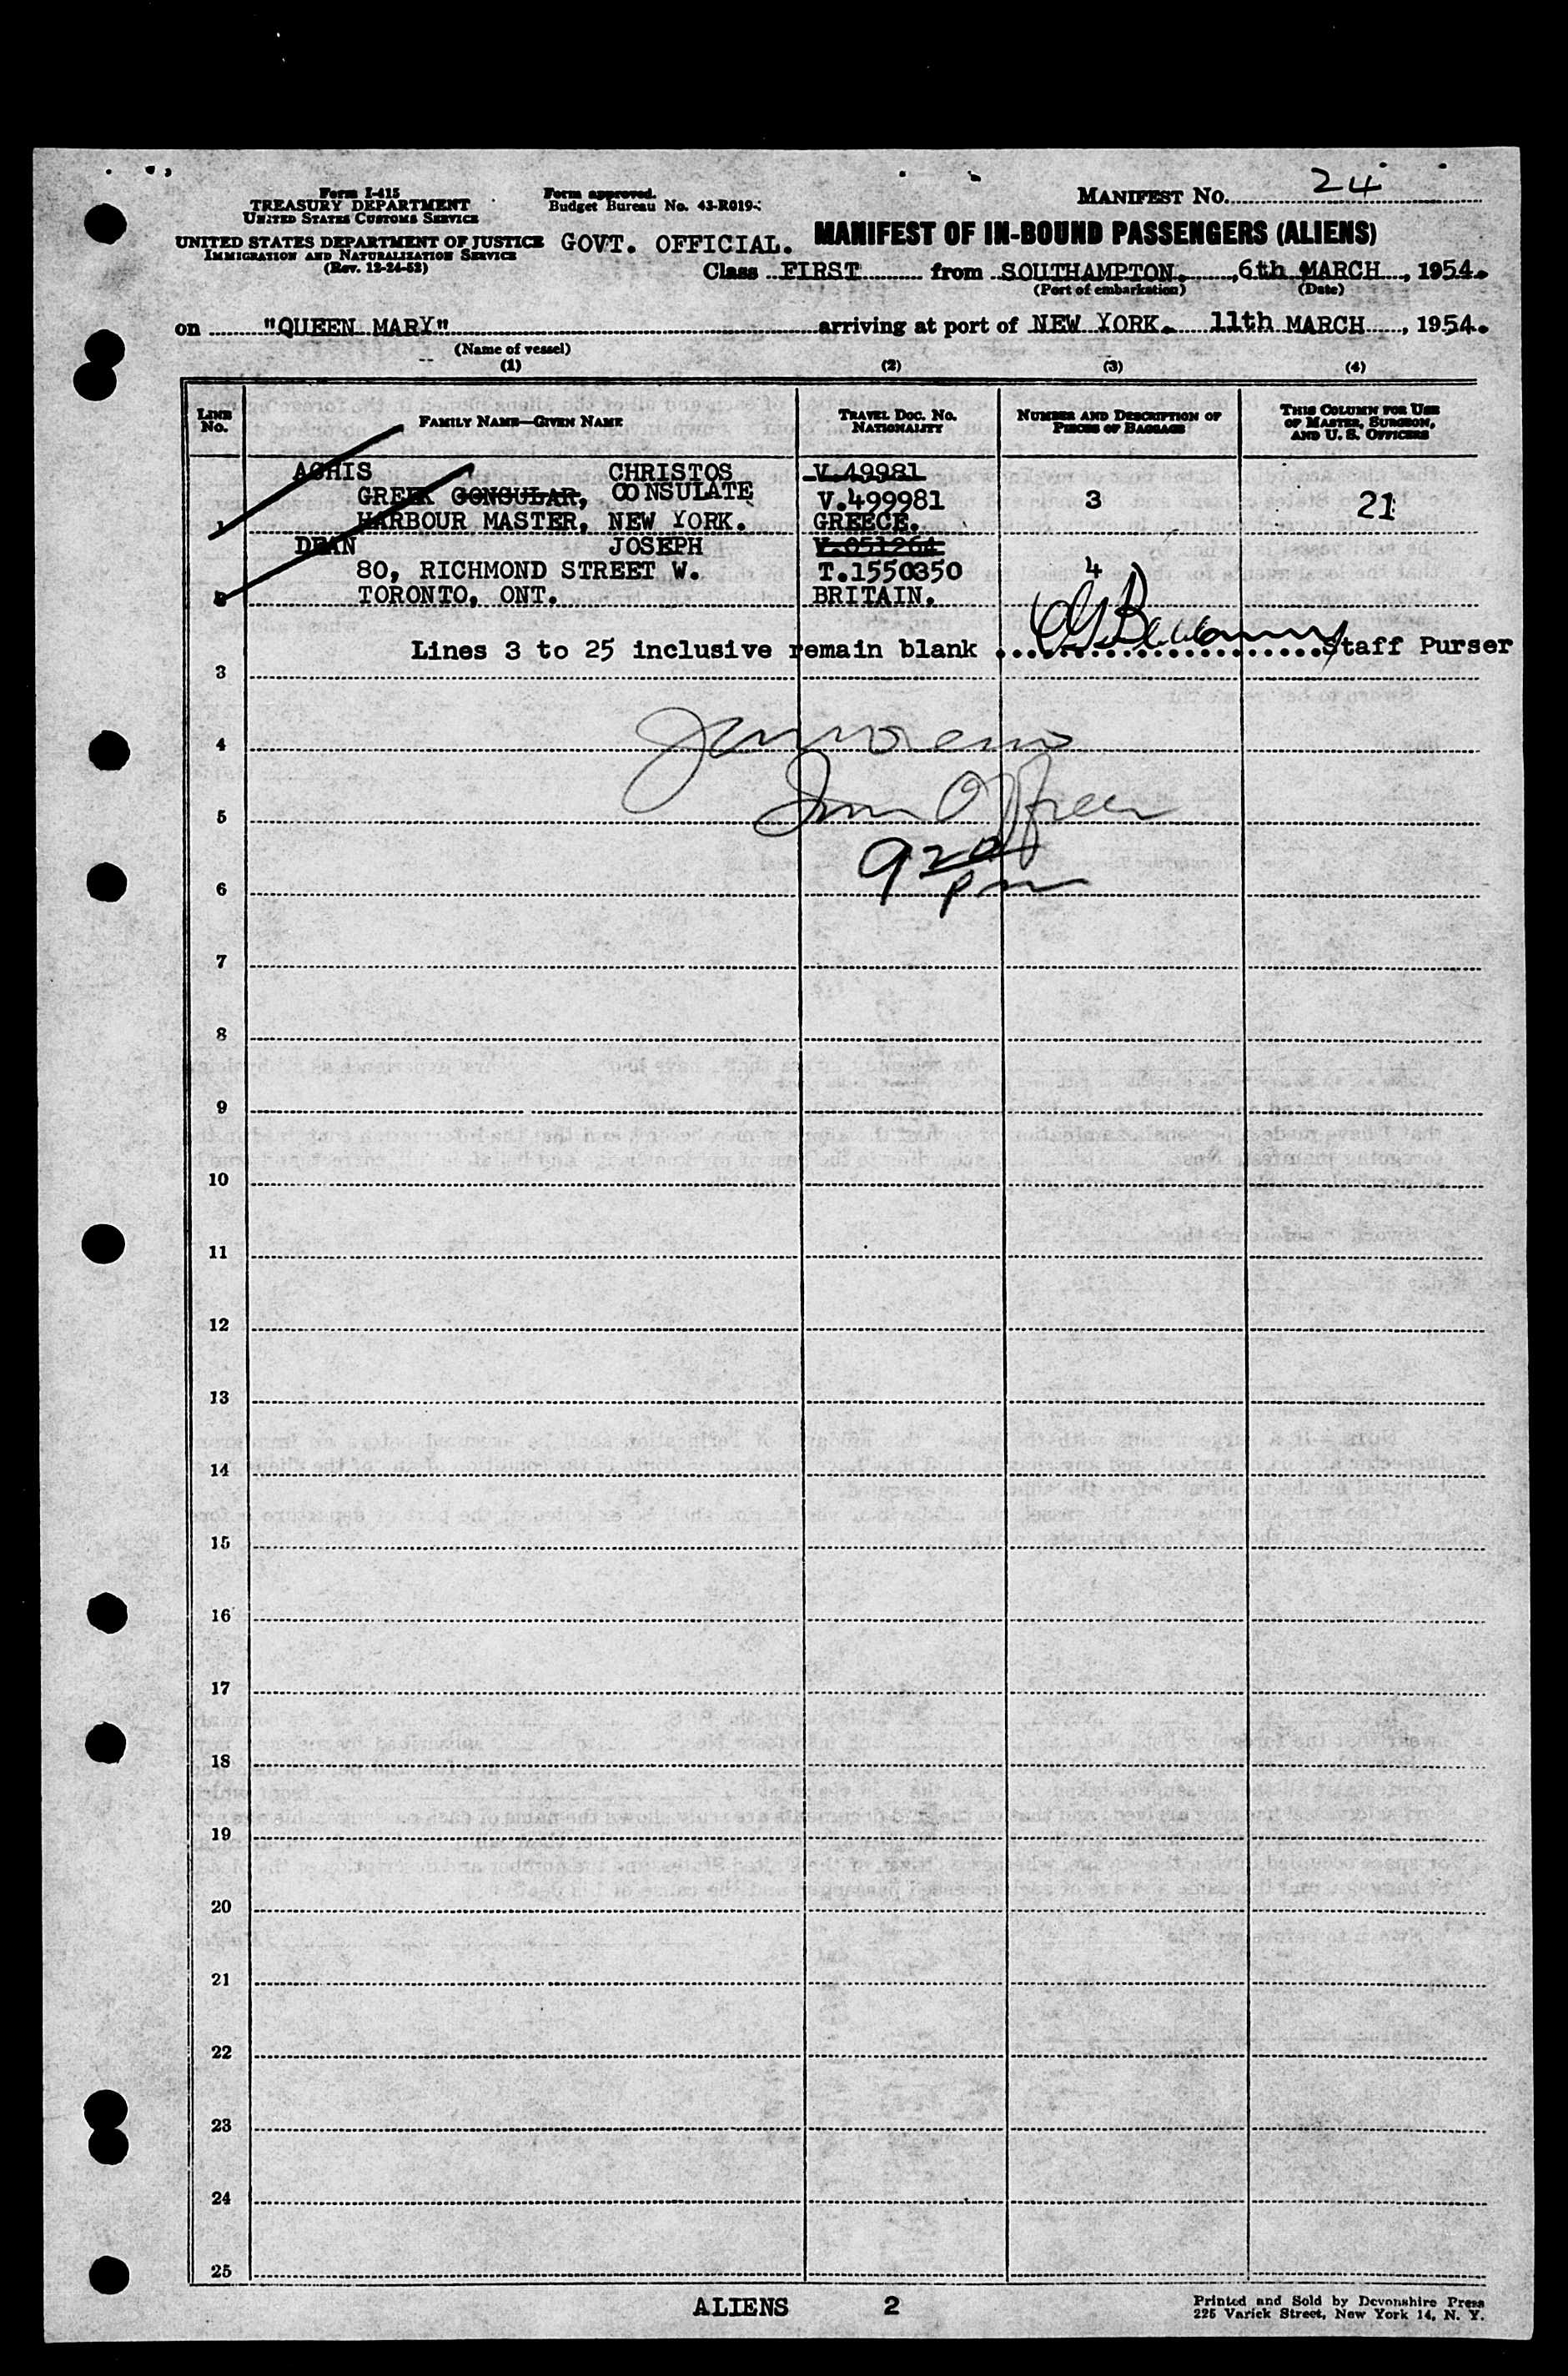 Form I-415
TREASURY DEPARTMENT
UNITED STATES CUSTOMS SERVICE
UNITED STATES DEPARTMENT OF JUSTICE
IMMIGRATION AND NATURALIZATION SERVICE
(Rev. 12-24-52)
Form approved.
Budget Bureau No. 43-R019-
MANIFEST NO. 24
GOVT. OFFICIAL. MANIFEST OF IN-BOUND PASSENGERS (ALIENS)
Class FIRST from SOUTHAMPTON. , 6th MARCH , 1954.
(Port of embarkation) (Date)
on "QUEEN MARY" arriving at port of NEW YORK. 11th MARCH , 1954.
(Name of vessel)
(1) (2) (3) (4)
LINE NO. FAMILY NAME—GIVEN NAME TRAVEL DOC. NO. NATIONALITY NUMBER AND DESCRIPTION OF PIECES OF BAGGAGE THIS COLUMN FOR USE OF MASTER, SURGEON, AND U. S. OFFICERS
AGHIS CHRISTOS V.49981
GREEK CONSULAR, CONSULATE V.499981 3 21
1 HARBOUR MASTER, NEW YORK. GREECE.
DEAN JOSEPH V.051264
80, RICHMOND STREET W. T.1550350 4
2 TORONTO, ONT. BRITAIN.
Lines 3 to 25 inclusive remain blank Staff Purser
3
4
5 Imm Officer
9 20
6 pm
7
8
9
10
11
12
13
14
15
16
17
18
19
20
21
22
23
24
25
ALIENS 2
Printed and Sold by Devonshire Press
225 Varick Street, New York 14, N. Y.